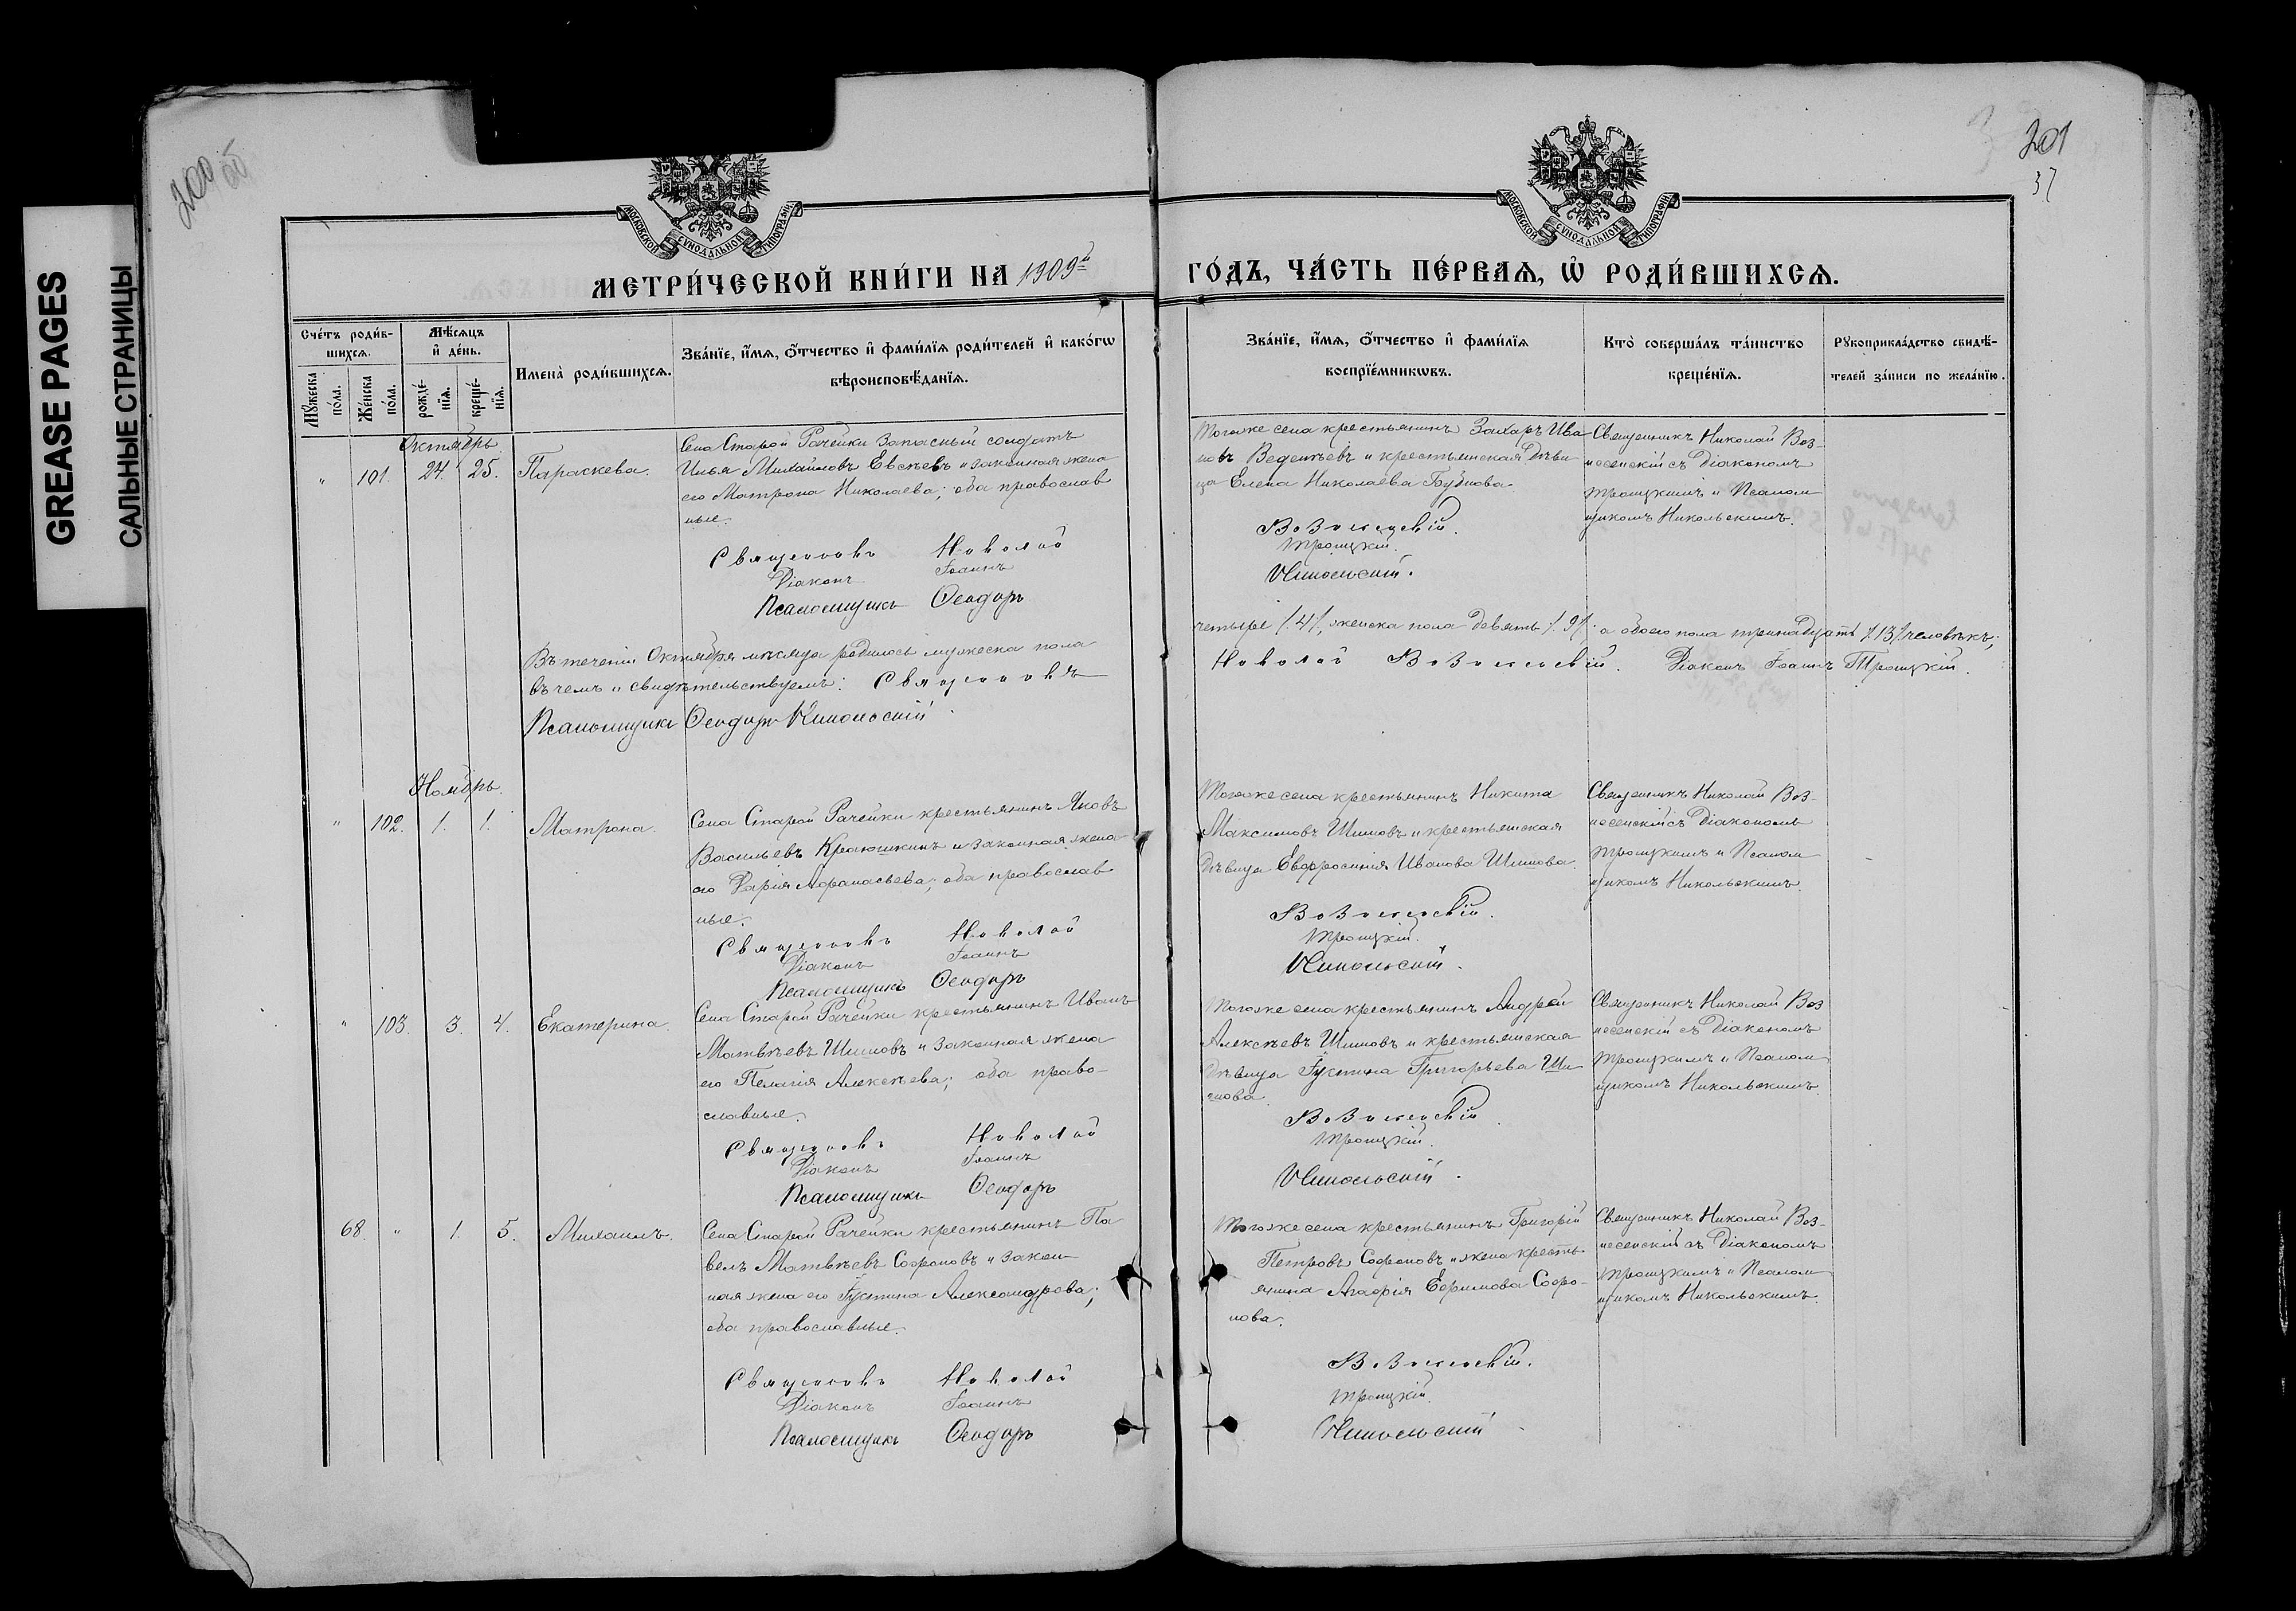 GREASE PAGES
САЛЬНЫЕ СТРАНИЦЫ
200
об
201
37
МОСКОВСКОЙ СѴНОДАЛЬНОЙ ТИПОГРАФІИ
МОСКОВСКОЙ СѴНОДАЛЬНОЙ ТИПОГРАФІИ
МЕТРИ́ЧЕСКОЙ КНИ́ГИ НА 1909й
ГО́ДЪ, ЧА́СТЬ ПЕ́РВАѦ, Ѡ҆ РОДИ́ВШИХСѦ.
Сче́тъ роди́в-
шихсѧ.
Мꙋ́жеска
по́ла.
Же́нска
по́ла.
Мѣ́сѧцъ
и҆ де́нь.
рожде́-
нїѧ.
креще́-
нїѧ.
Имена̀ роди́вшихсѧ.
Зва́нїе, и҆́мѧ, ѻ҆́тчество и҆ фами́лїѧ роди́телей и҆ како́гѡ
вѣроисповѣ́данїѧ.
Зва́нїе, и҆́мѧ, ѻ҆́тчество и҆ фами́лїѧ
воспрїе́мникѡвъ.
Кто̀ соверша́лъ та́инство
креще́нїѧ.
Рꙋкоприкла́дство свидѣ́-
телей за́писи по жела́нїю.
Октябрь
" 101. 24. 25. Параскева.
Села Старой Рачейки запасный солдатъ
Илья Михайловъ Евсѣевъ и законная жена
его Матрона Николаева; оба православ
ные.
Священникъ Николай
Діаконъ Іоаннъ
Псаломщикъ Ѳеодоръ
Тогоже села крестьянинъ Захаръ Ива
новъ Веденѣевъ и крестьянская дѣви
ца Елена Николаева
Вознесенскій.
Троицкій.
Никольскій.
Священникъ Николай Воз-
несенскій съ Діакономъ
Троицкимъ и Псалом
щикомъ Никольскимъ.
Въ теченіи Октября мѣсяца родилось мужеска пола
четыре /.4./, женска пола девять /.9/. а обоего пола тринадцать /.13/. человѣкъ;
въ чемъ и свидѣтельствуемъ: Священникъ
Николай Вознесенскій. Діаконъ Іоаннъ Троицкій.
Псаломщикъ Ѳеодоръ Никольскій.
Ноябрь.
" 102. 1. 1. Матрона.
Села Старой Рачейки крестьянинъ Яковъ
Васильевъ Краюшкинъ и законная жена
его Дарія Аѳанасьева; оба православ
ные.
Священникъ Николай
Діаконъ Іоаннъ
Псаломщикъ Ѳеодоръ
Тогоже села крестьянинъ Никита
Максимовъ Шишовъ и крестьянская
дѣвица Евфросинія Иванова Шишова.
Вознесенскій.
Троицкій.
Никольскій.
Священникъ Николай Воз-
несенскій съ Діакономъ
Троицкимъ и Псалом
щикомъ Никольскимъ.
" 103. 3. 4. Екатерина.
Села Старой Рачейки крестьянинъ Иванъ
Матвѣевъ Шишовъ и законная жена
его Пелагія Алексѣева; оба право-
славные.
Священникъ Николай
Діаконъ Іоаннъ
Псаломщикъ Ѳеодоръ
Тогоже села крестьянинъ Андрей
Алексѣевъ Шишовъ и крестьянская
дѣвица Іустина Григорьева Ши
шова.
Вознесенскій
Троицкій.
Никольскій.
Священникъ Николай Воз
несенскій съ Діакономъ
Троицкимъ и Псалом
щикомъ Никольскимъ.
68. " 1. 5. Михаилъ.
Села Старой Рачейки крестьянинъ Па
велъ Матвѣевъ Софоновъ и закон
ная жена его Іустина Александрова;
оба православные.
Священникъ Николай
Діаконъ Іоаннъ
Псаломщикъ Ѳеодоръ
Тогоже села крестьянинъ Григорій
Петровъ Софоновъ и жена кресть
янина Агафія Ефимова Софо-
нова.
Вознесенскій.
Троицкій.
Никольскій
Священникъ Николай Воз-
несенскій съ Діакономъ
Троицкимъ и Псалом
щикомъ Никольскимъ.